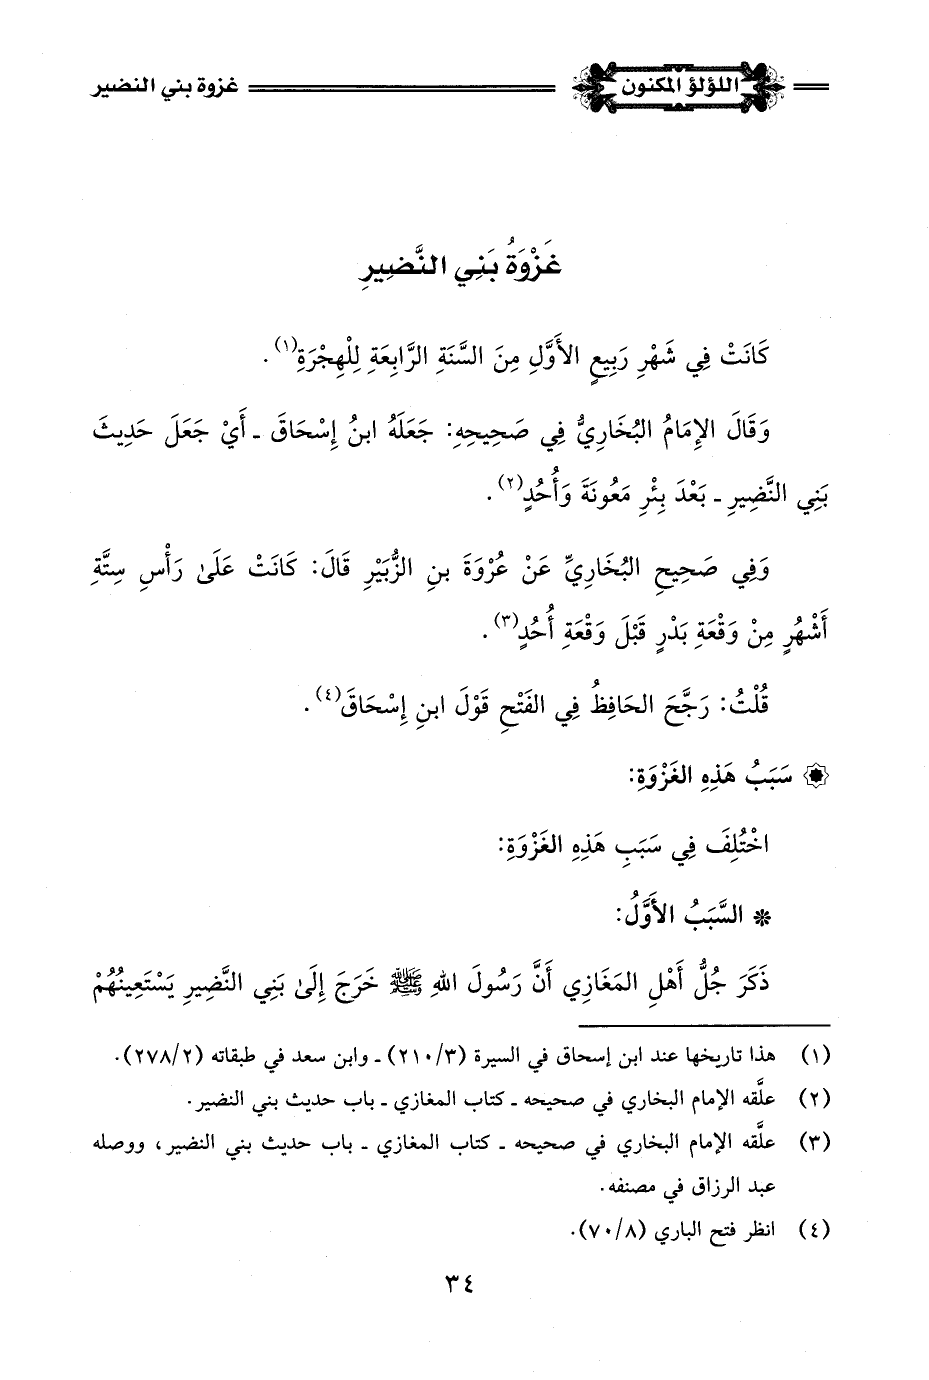 اللؤلؤ المكنون غزوة بني النضير
غَزْوَةُ بَنِي النَّضِيرِ
كَانَتْ فِي شَهْرِ رَبِيعٍ الأَوَّلِ مِنَ السَّنَةِ الرَّابِعَةِ لِلْهِجْرَةِ(١).
وَقَالَ الإِمَامُ البُخَارِيُّ فِي صَحِيحِهِ: جَعَلَهُ ابنُ إِسْحَاقَ ـ أَيْ جَعَلَ حَدِيثَ
بَنِي النَّضِيرِ ـ بَعْدَ بِئْرِ مَعُونَةَ وَأُحُدٍ(٢).
وَفِي صَحِيحِ البُخَارِيِّ عَنْ عُرْوَةَ بنِ الزُّبَيْرِ قَالَ: كَانَتْ عَلَىٰ رَأْسِ سِتَّةِ
أَشْهُرٍ مِنْ وَقْعَةِ بَدْرٍ قَبْلَ وَقْعَةِ أُحُدٍ(٣).
قُلْتُ: رَجَّحَ الحَافِظُ فِي الفَتْحِ قَوْلَ ابنِ إِسْحَاقَ(٤).
۞ سَبَبُ هَذِهِ الغَزْوَةِ:
اخْتُلِفَ فِي سَبَبِ هَذِهِ الغَزْوَةِ:
* السَّبَبُ الأَوَّلُ:
ذَكَرَ جُلُّ أَهْلِ المَغَازِي أَنَّ رَسُولَ اللهِ ﷺ خَرَجَ إِلَىٰ بَنِي النَّضِيرِ يَسْتَعِينُهُمْ
(١) هذا تاريخها عند ابن إسحاق في السيرة (٢١٠/٣) ـ وابن سعد في طبقاته (٢٧٨/٢).
(٢) علَّقه الإمام البخاري في صحيحه ـ كتاب المغازي ـ باب حديث بني النضير.
(٣) علَّقه الإمام البخاري في صحيحه ـ كتاب المغازي ـ باب حديث بني النضير، ووصله
عبد الرزاق في مصنفه.
(٤) انظر فتح الباري (٧٠/٨).
٣٤